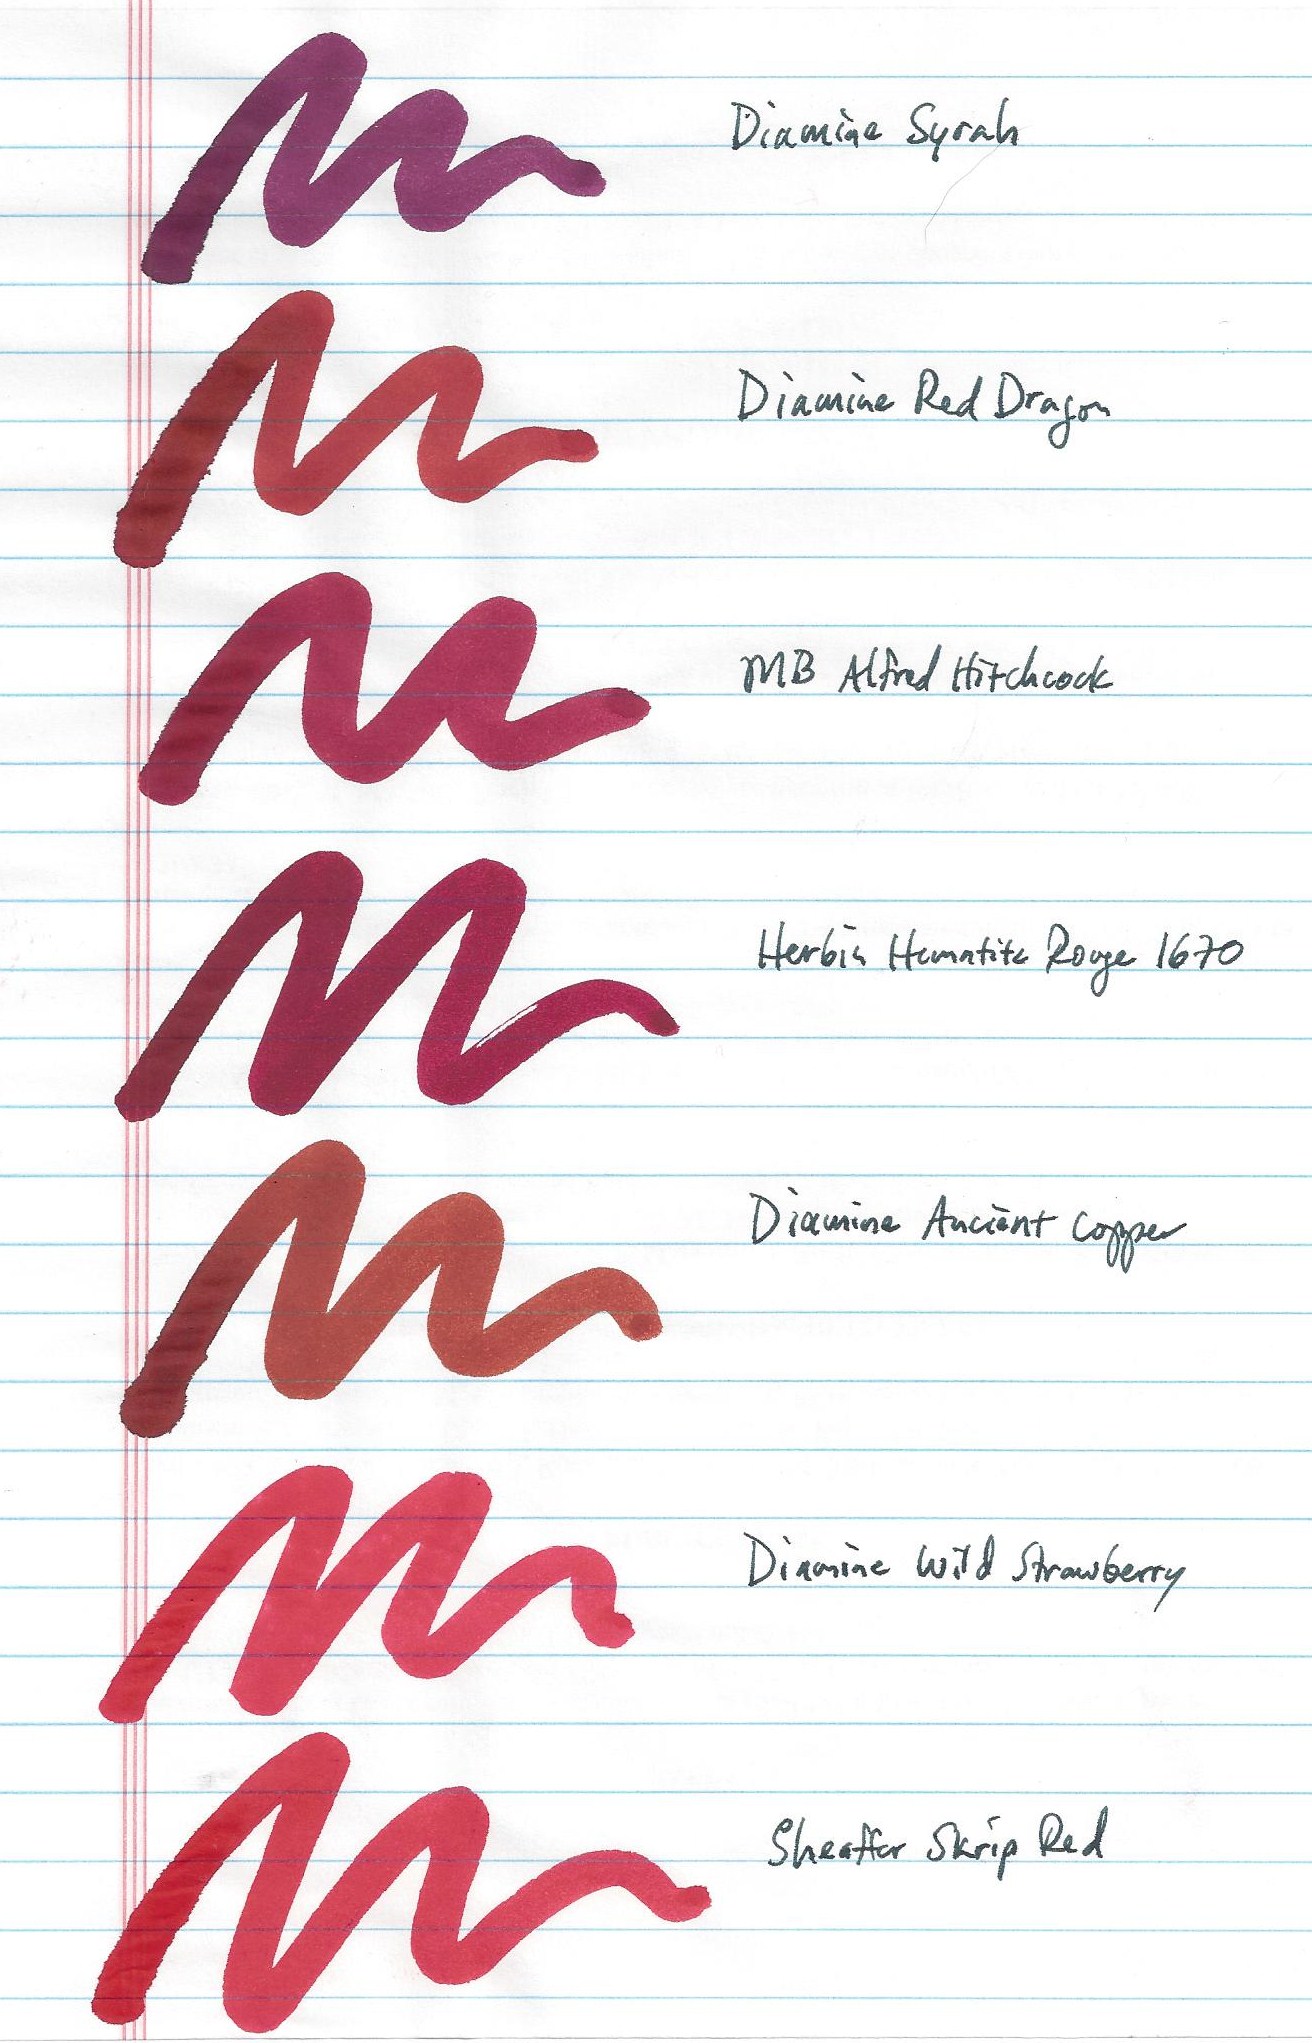 Diamine Syrah
Diamine Red Dragon
MB Alfred Hitchcock
Herbin Hematite Rouge 1670
Diamine Ancient Copper
Diamine Wild Strawberry
Sheaffer Skrip Red